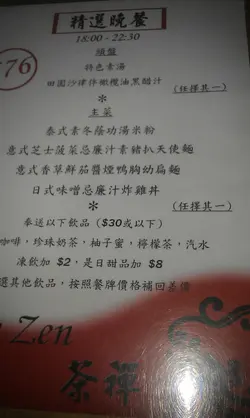 精選晚餐
18:00 - 22:30
頭盤
$76
特色素湯
田園沙律伴橄欖油黑醋汁
(任擇其一)
*
主菜
泰式素冬蔭功湯米粉
意式芝士菠菜忌廉汁素豬扒天使麵
意式香草鮮茄醬煙鴨胸幼扁麵
日式味噌忌廉汁炸雞丼
*
(任擇其一)
奉送以下飲品 ($30或以下)
咖啡，珍珠奶茶，柚子蜜，檸檬茶，汽水
凍飲加 $2，是日甜品加 $8
選其他飲品，按照餐牌價格補回差價
Zen
茶禪